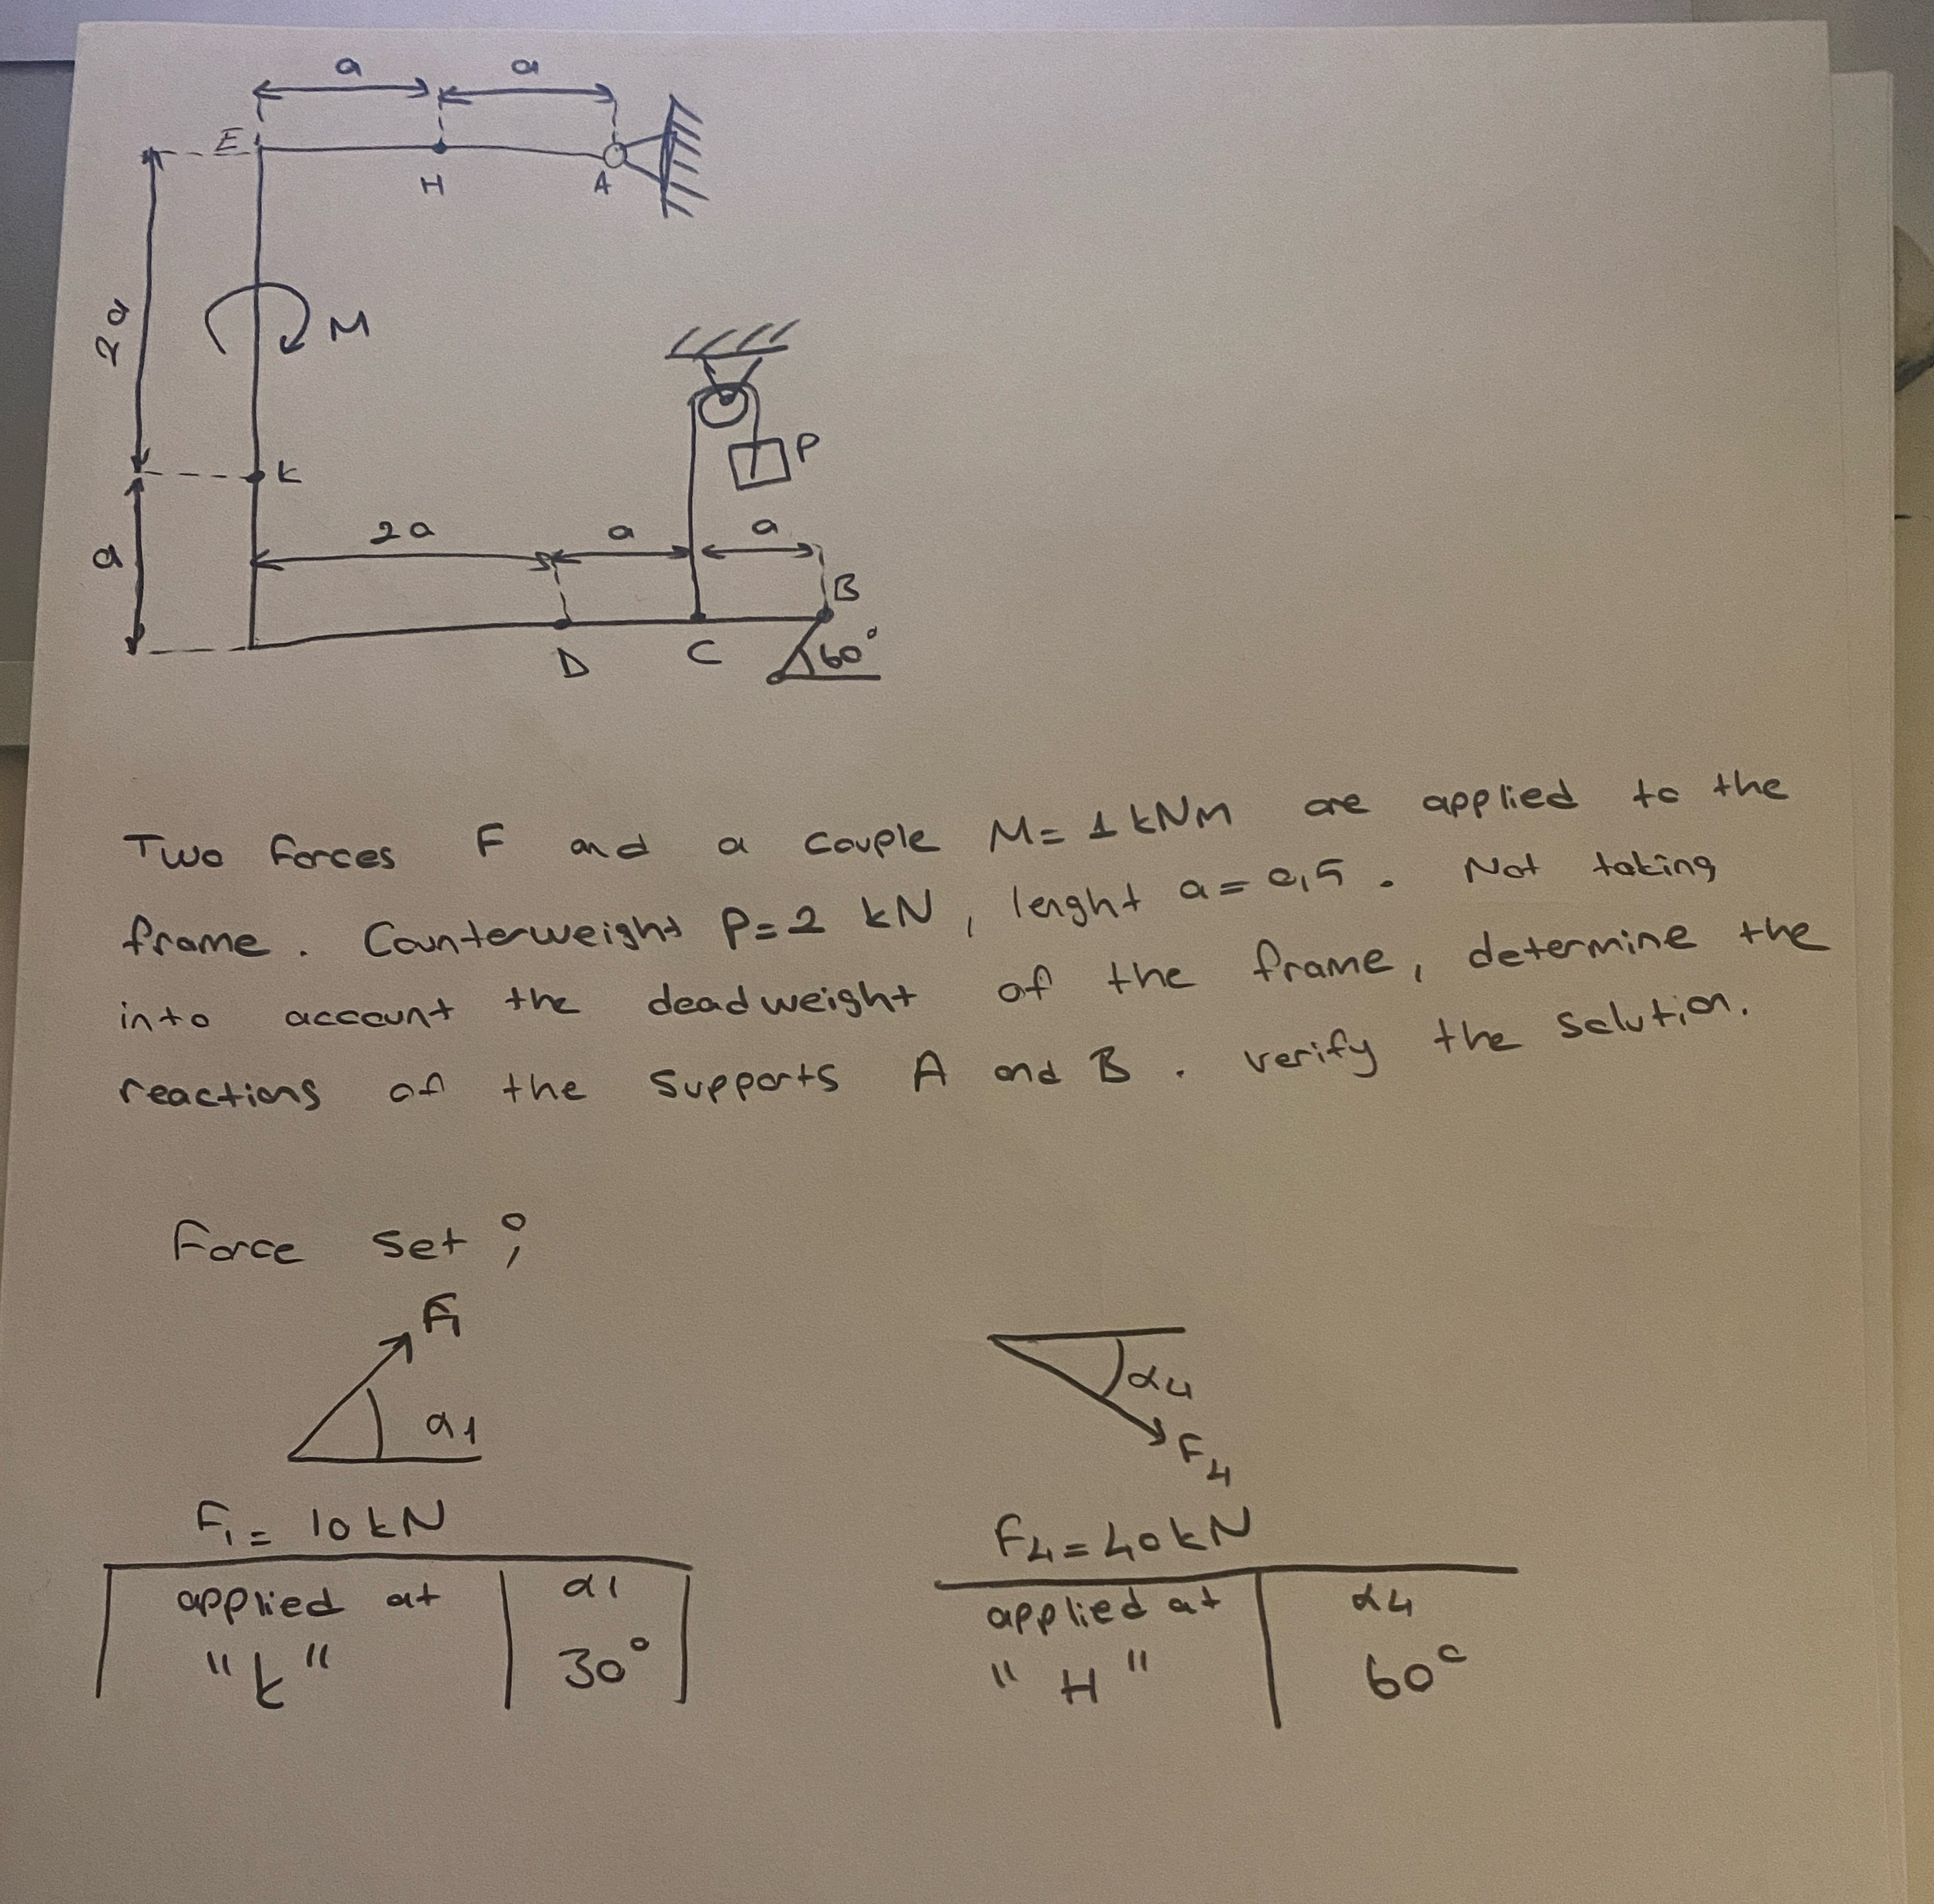 a a
E
H A
2a
M
P
K
2a a a
a
B
D C 60°
Two forces F and a couple M= 1 kNm are applied to the
frame. Counterweight P=2 kN, lenght a=0,5. Not taking
into account the deadweight of the frame, determine the
reactions of the supports A and B. verify the solution.
Force set ;
F1
α1
α4
F4
F1= 10 kN
F4=40kN
applied at α1
"k" 30°
applied at α4
"H" 60°